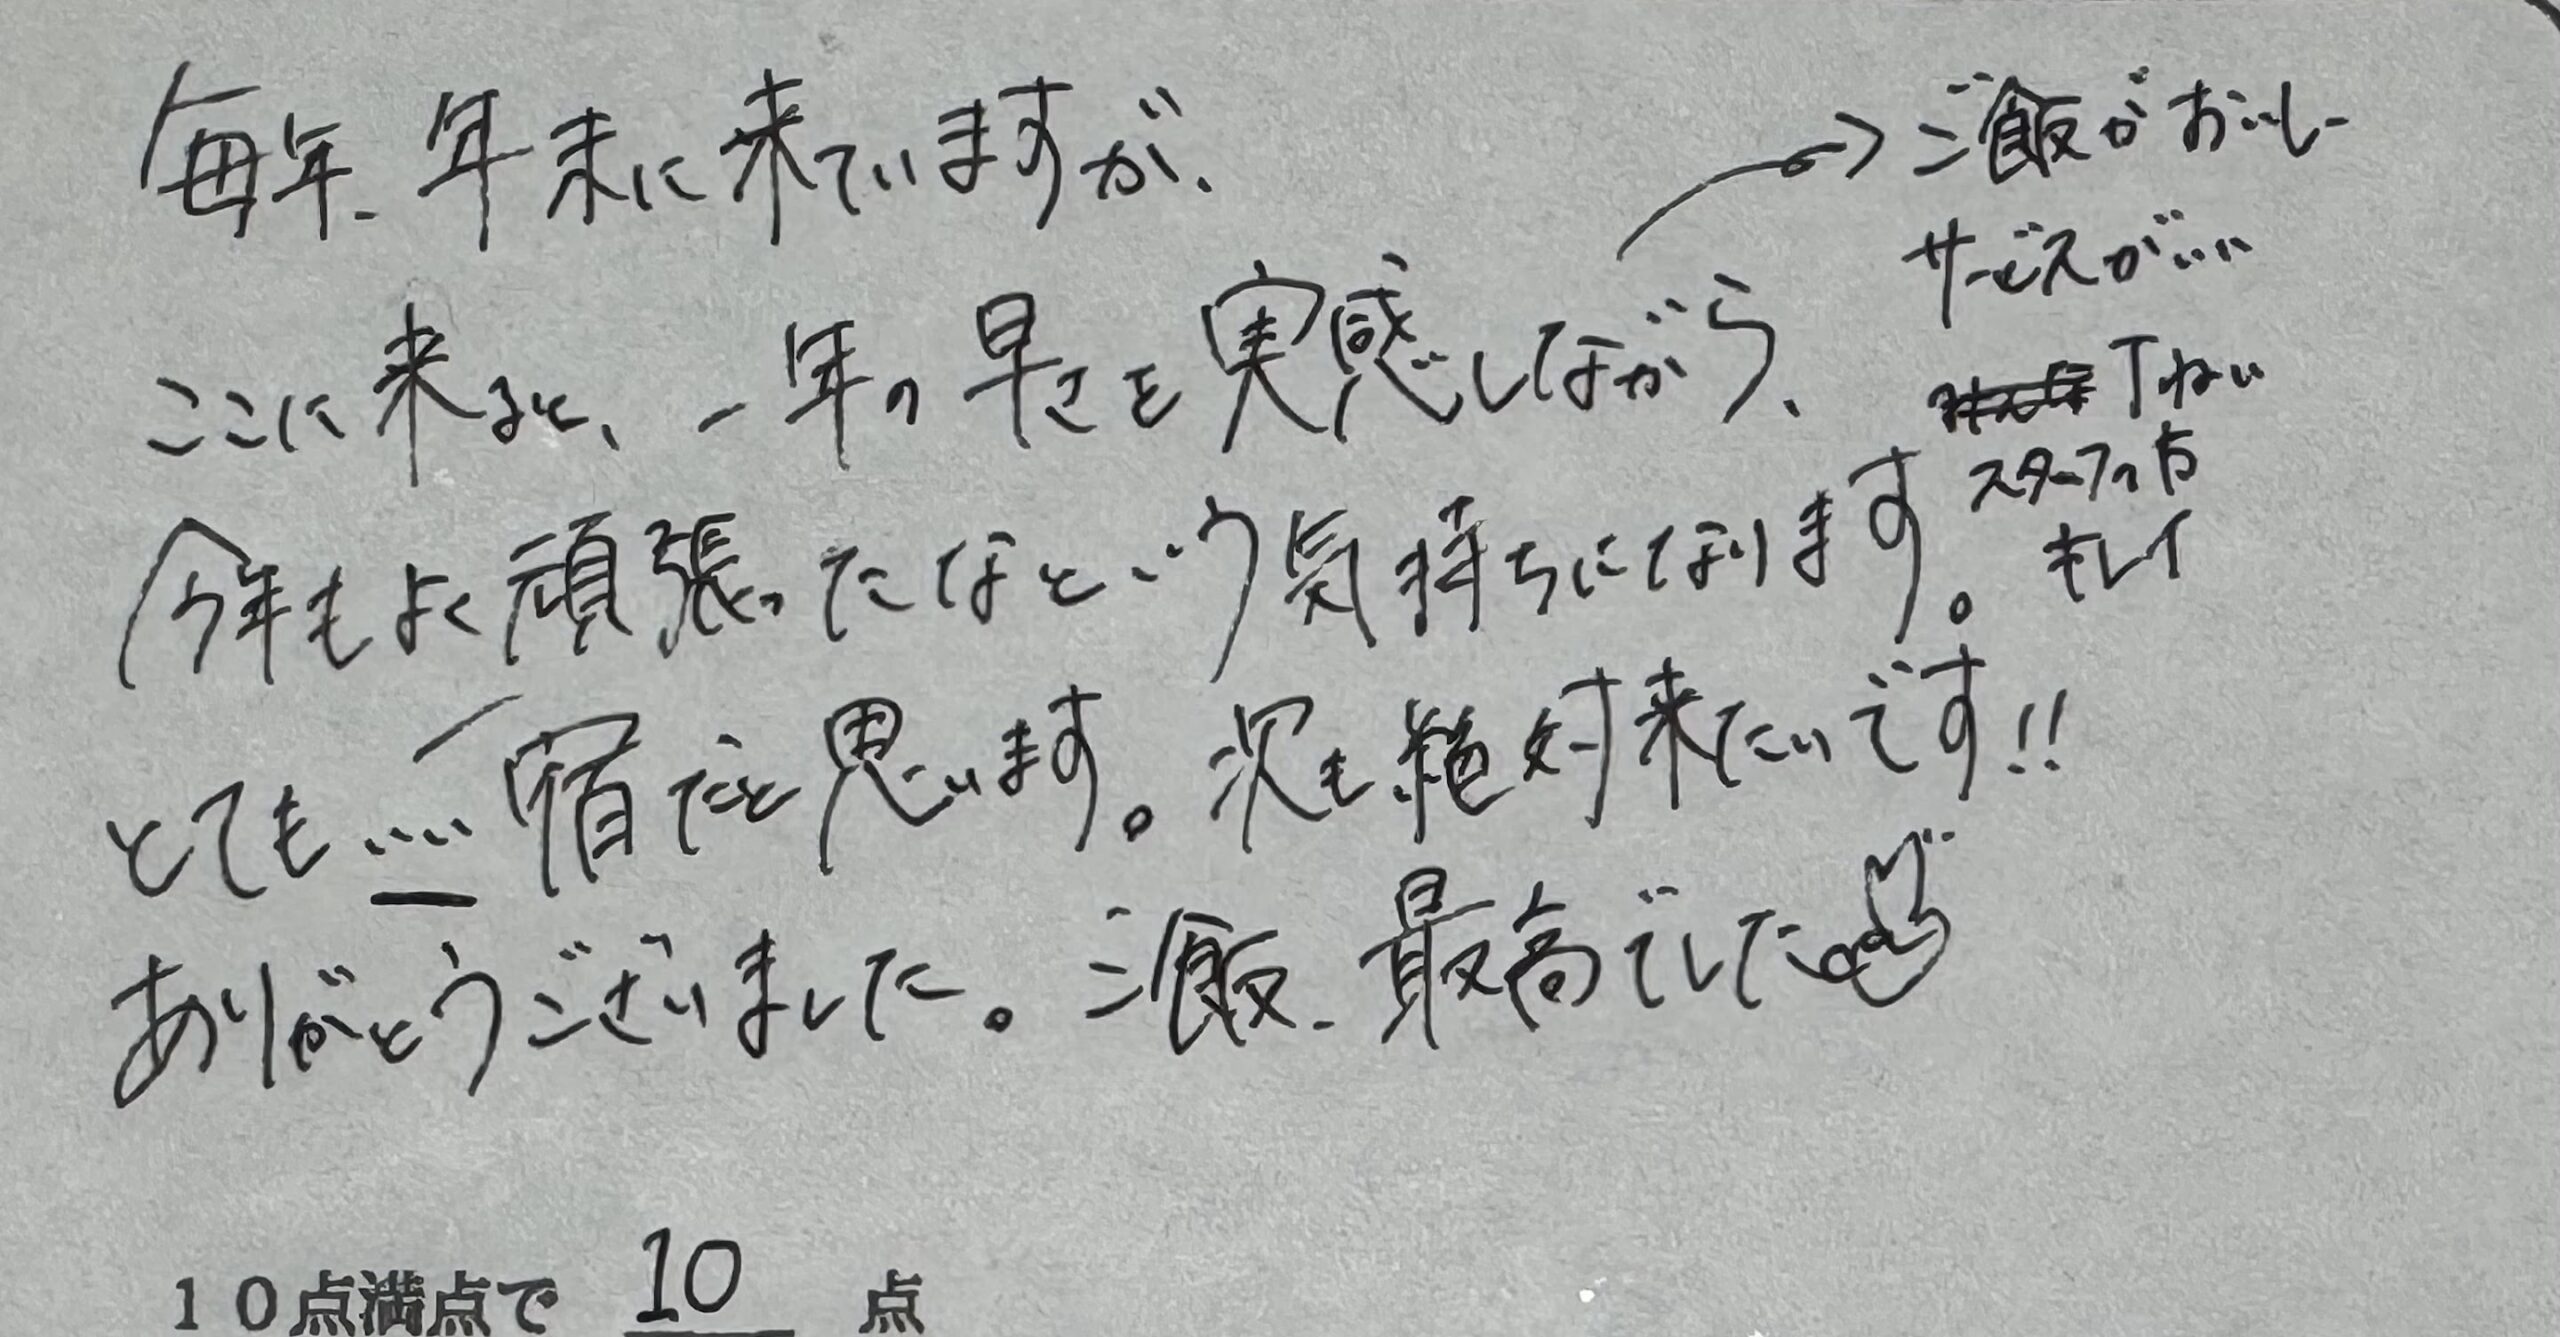 毎年、年末に来ていますが、
ここに来ると、一年の早さを実感しながら、
今年もよく頑張ったなという気持ちになります。
とても いい 宿だと思います。次も絶対来たいです!!
ありがとうございました。ご飯、最高でした
→ご飯がおいしー
サービスがいい
Tねい
スタッフの方
キレイ
10点満点で 10 点